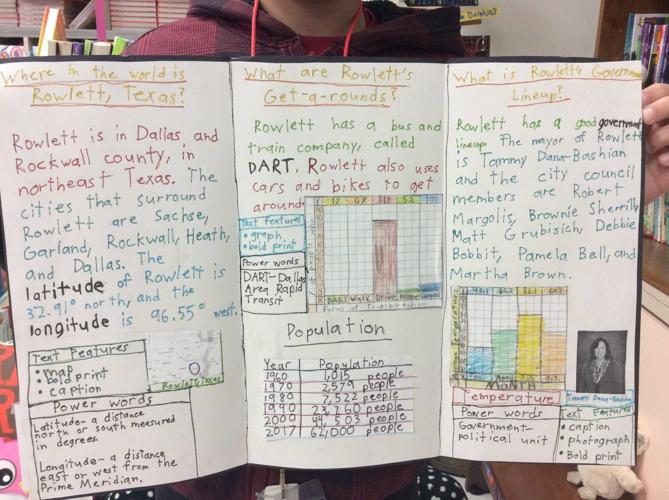 Where in the world is
Rowlett, Texas?
Rowlett is in Dallas and
Rockwall county, in
northeast Texas. The
cities that surround
Rowlett are Sachse,
Garland, Rockwall, Heath,
and Dallas. The
latitude of Rowlett is
32.91° north, and the
longitude is 96.55° west.
Text Features
• map
• bold print
• caption
Rowlett, Texas
Power words
Latitude- a distance
north or south measured
in degrees.
Longitude- a distance
east or west from the
Prime Meridian.
What are Rowlett's
Get-a-rounds?
Rowlett has a bus and
train company, called
DART. Rowlett also uses
cars and bikes to get
around.
Text Features
• graph
• bold print
Power words
DART- Dallas
Area Rapid
Transit
DART Walk Drive Home Carpool
Form of Transportation
Population
Year Population
1960 1,015 people
1970 2,579 people
1980 7,522 people
1990 23,260 people
2000 44,503 people
2017 62,000 people
What is Rowlett's Governme
Lineup?
Rowlett has a good government
lineup. The mayor of Rowlett
is Tammy Dana-Bashian
and the city council
members are Robert
Margolis, Brownie Sherrill,
Matt Grubisich, Debbie
Bobbit, Pamela Bell, and
Martha Brown.
MONTH
Temperature
Tammy Dana-Bashian
Power words
Government-
political unit
Text Features
• caption
• photograph
• Bold print
Dolphins